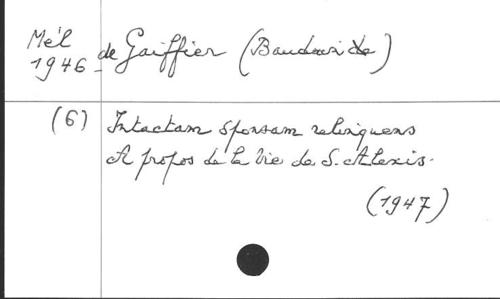 Mél de Gaiffier (Baudouin de)
1946_
(6) Intactam sponsam relinquens
A propos de la Vie de S. Alexis.
(1947)